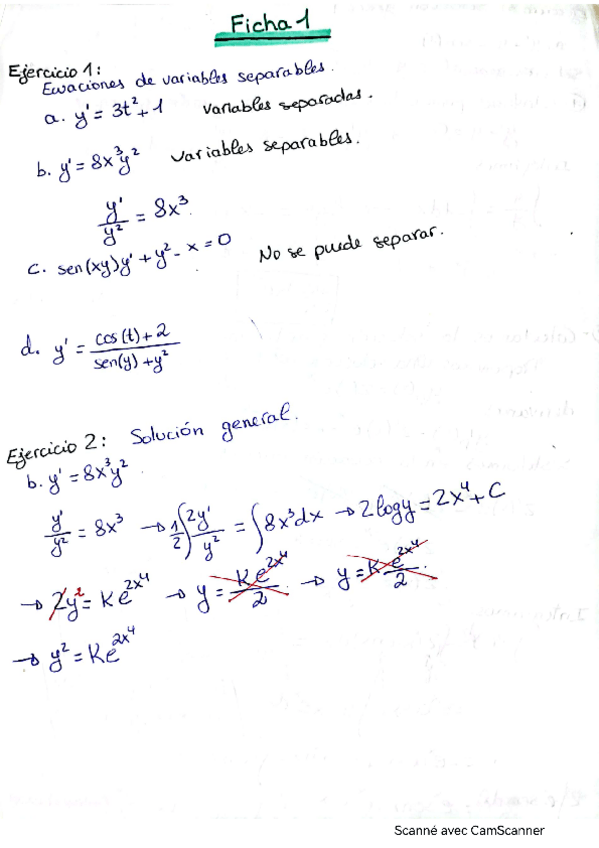 Ficha 1
Ejercicio 1:
Ecuaciones de variables separables.
a. y' = 3t² + 1 variables separadas.
b. y' = 8x³y² variables separables.
y'/y² = 8x³
c. sen(xy)y' + y² - x = 0 No se puede separar.
d. y' = (cos(t)+2)/(sen(y)+y²)
Ejercicio 2: Solución general.
b. y' = 8x³y²
y'/y² = 8x³ → 1/2 ∫ 2y'/y² = ∫ 8x³dx → 2 log y = 2x⁴ + C
→ 2y² = Ke^(2x⁴) → y = Ke^(2x⁴)/2 → y = Ke^(2x⁴)/2.
→ y² = Ke^(2x⁴)
Scanné avec CamScanner